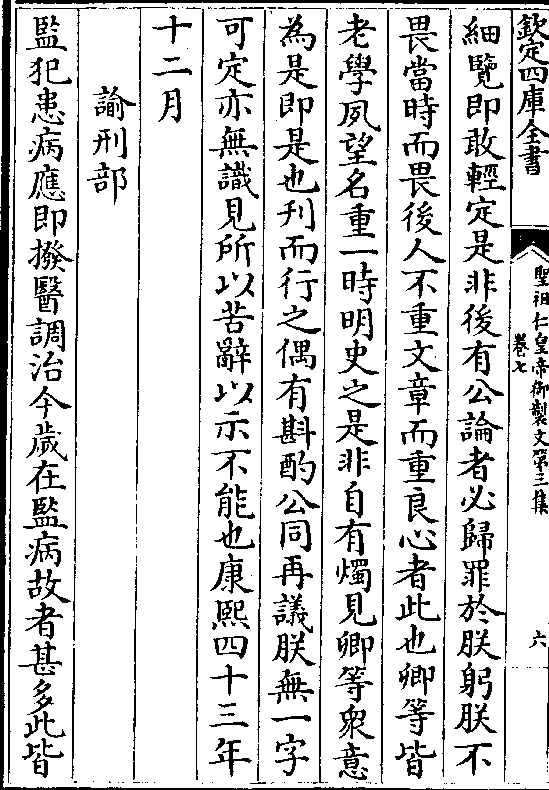 欽定四庫全書
聖祖仁皇帝御製文第三集
卷七
六
細覽即敢輕定是非後有公論者必歸罪於朕躬朕不
畏當時而畏後人不重文章而重良心者此也卿等皆
老學夙望名重一時明史之是非自有燭見卿等衆意
為是即是也刋而行之偶有斟酌公同再議朕無一字
可定亦無識見所以苦辭以示不能也康熙四十三年
十二月
諭刑部
監犯患病應即撥醫調治今歲在監病故者甚多此皆